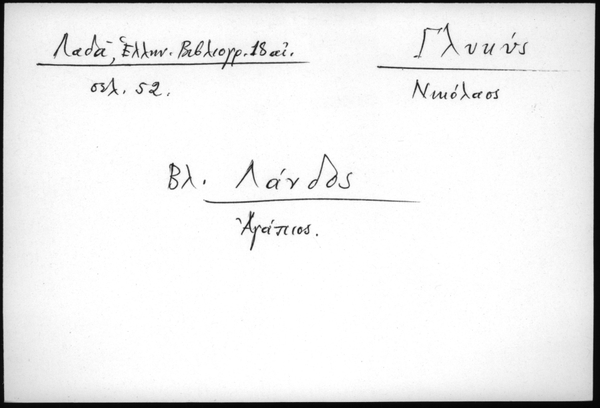 Λαδᾶ, Ἑλλην. Βιβλιογρ. 18 αἰ.
σελ. 52.
Γλυκύς
Νικόλαος
Βλ. Λάνδος
Ἀγάπιος.